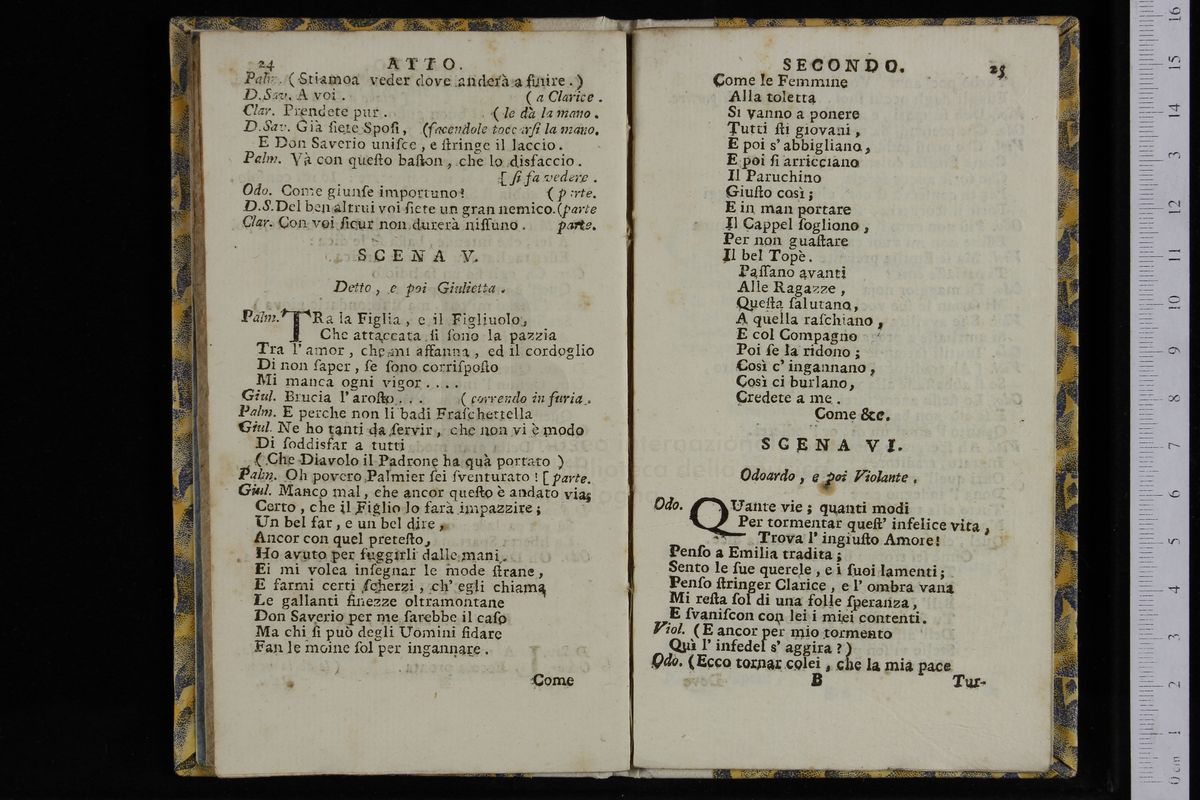 24 ATTO.
Palm. (Stiamoa veder dove anderà a finire.)
D.Sav. A voi. (a Clarice.
Clar. Prendete pur. (le dà la mano.
D.Sav. Già ſiete Spoſi, (facendole toccarſi la mano.
E Don Saverio uniſce, e ſtringe il laccio.
Palm. Và con queſto baſton, che lo disfaccio.
[ſi fa vedere.
Odo. Come giunſe importuno! (parte.
D.S. Del ben altrui voi ſiete un gran nemico. (parte
Clar. Con voi ſicur non durerà niſſuno. parte.
SCENA V.
Detto, e poi Giulietta.
Palm. TRa la Figlia, e il Figliuolo,
Che attaccata ſi ſono la pazzia
Tra l'amor, che mi affanna, ed il cordoglio
Di non ſaper, ſe ſono corriſpoſto
Mi manca ogni vigor....
Giul. Brucia l'aroſto... (correndo in furia.
Palm. E perche non li badi Fraſchettella
Giul. Ne ho tanti da ſervir, che non vi è modo
Di ſoddisfar a tutti
(Che Diavolo il Padrone ha quà portato)
Palm. Oh povero Palmier ſei ſventurato! [parte.
Giul. Manco mal, che ancor queſto è andato via;
Certo, che il Figlio lo farà impazzire;
Un bel far, e un bel dire,
Ancor con quel preteſto,
Ho avuto per fuggirli dalle mani.
Ei mi volea inſegnar le mode ſtrane,
E farmi certi ſcherzi, ch'egli chiama
Le gallanti finezze oltramontane
Don Saverio per me ſarebbe il caſo
Ma chi ſi può degli Uomini fidare
Fan le moine ſol per ingannare.
Come
SECONDO. 25
Come le Femmine
Alla toletta
Si vanno a ponere
Tutti ſti giovani,
E poi s'abbigliano,
E poi ſi arricciano
Il Paruchino
Giuſto così;
E in man portare
Il Cappel ſogliono,
Per non guaſtare
Il bel Topè.
Paſſano avanti
Alle Ragazze,
Queſta ſalutano,
A quella raſchiano,
E col Compagno
Poi ſe la ridono;
Così c'ingannano,
Così ci burlano,
Credete a me.
Come &c.
SCENA VI.
Odoardo, e poi Violante.
Odo. QUante vie; quanti modi
Per tormentar queſt'infelice vita,
Trova l'ingiuſto Amore!
Penſo a Emilia tradita;
Sento le ſue querele, e i ſuoi lamenti;
Penſo ſtringer Clarice, e l'ombra vana
Mi reſta ſol di una folle ſperanza,
E ſvaniſcon con lei i miei contenti.
Viol. (E ancor per mio tormento
Quì l'infedel s'aggira?)
Odo. (Ecco tornar colei, che la mia pace
B Tur-
0 cm 1 2 3 4 5 6 7 8 9 10 11 12 13 14 15 16